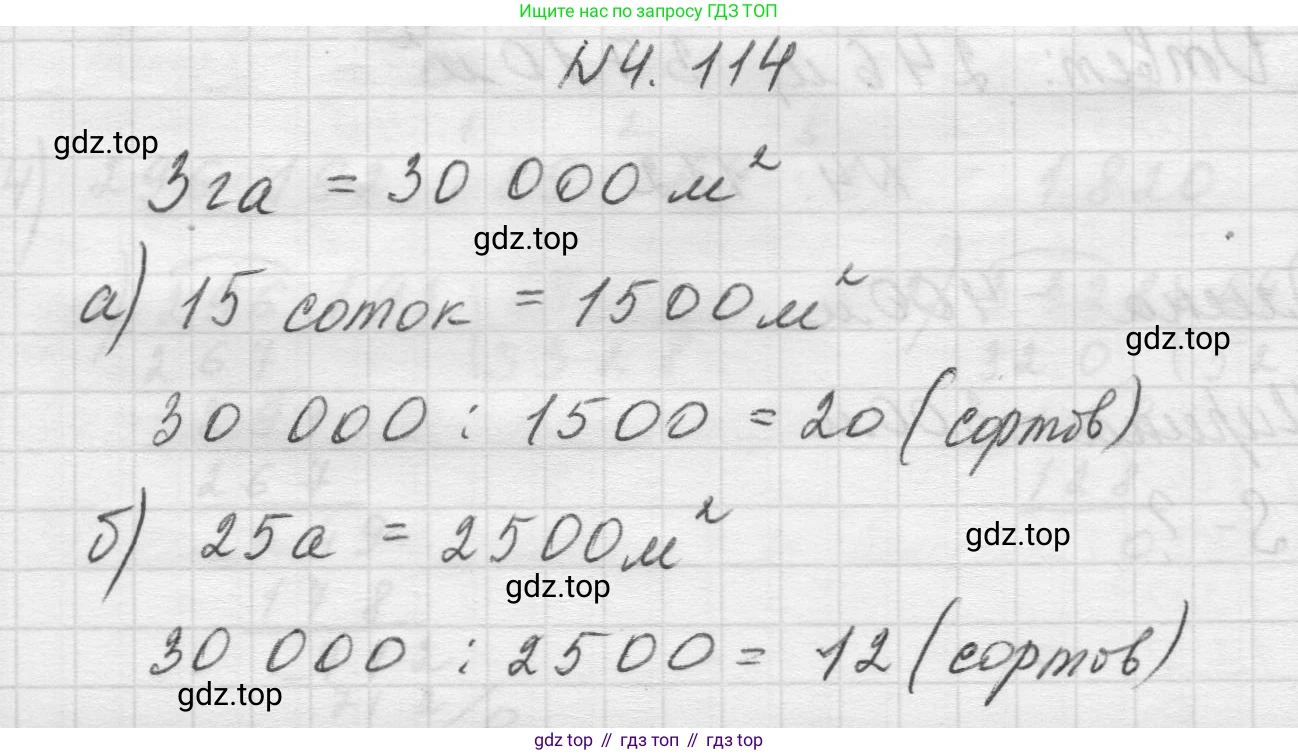 Ищите нас по запросу ГДЗ ТОП
№4.114
gdz.top
3га = 30 000 м²
gdz.top
а) 15 соток = 1500м²
gdz.top
30 000 : 1500 = 20 (сортов)
б) 25а = 2500м²
gdz.top
gdz.top
30 000 : 2500 = 12 (сортов)
gdz.top
gdz top // гдз топ // гдз top